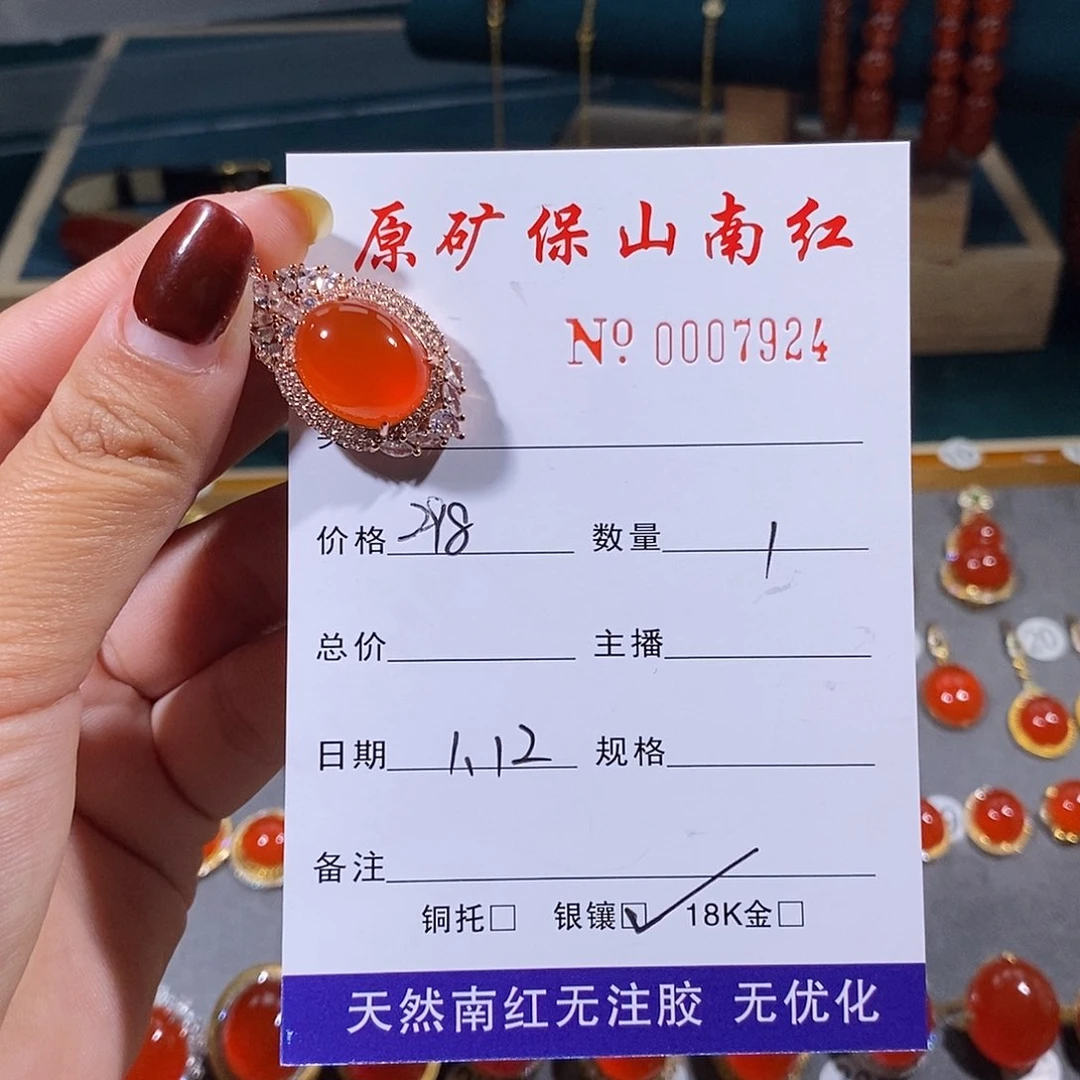 原矿保山南红
Nº 0007924
价格 298 数量 1
总价 主播
日期 1.12 规格
备注
铜托□ 银镶☑ 18K金□
天然南红无注胶 无优化
20